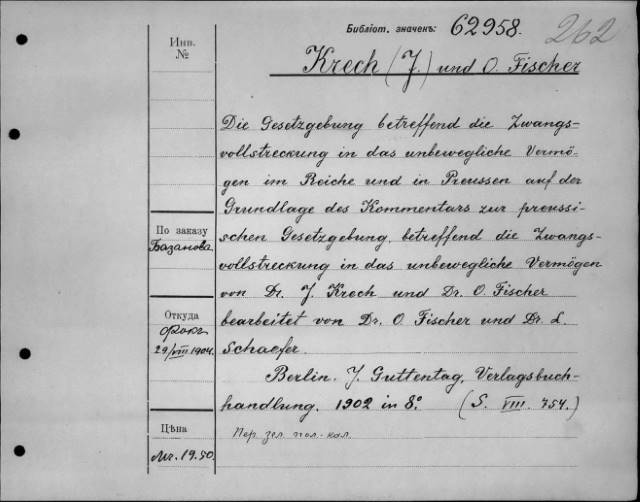 Библіот. значекъ: 62958. 262
Инв.
№
Krech (J.) und O. Fischer
Die Gesetzgebung betreffend die Zwangs-
vollstreckung in das unbewegliche Vermö-
gen im Reiche und in Preussen auf der
Grundlage des Kommentars zur preussi-
schen Gesetzgebung, betreffend die Zwangs-
vollstreckung in das unbewegliche Vermögen
von Dr. J. Krech und Dr. O. Fischer
bearbeitet von Dr. O. Fischer und Dr. L.
Schaefer.
Berlin. J. Guttentag, Verlagsbuch-
handlung. 1902 in 8.° (S. VIII. 754.)
По заказу
Базанова.
Откуда
29/VIII 1904.
Цѣна
Mr. 19.50.
Пер. зел. пол.-кал.